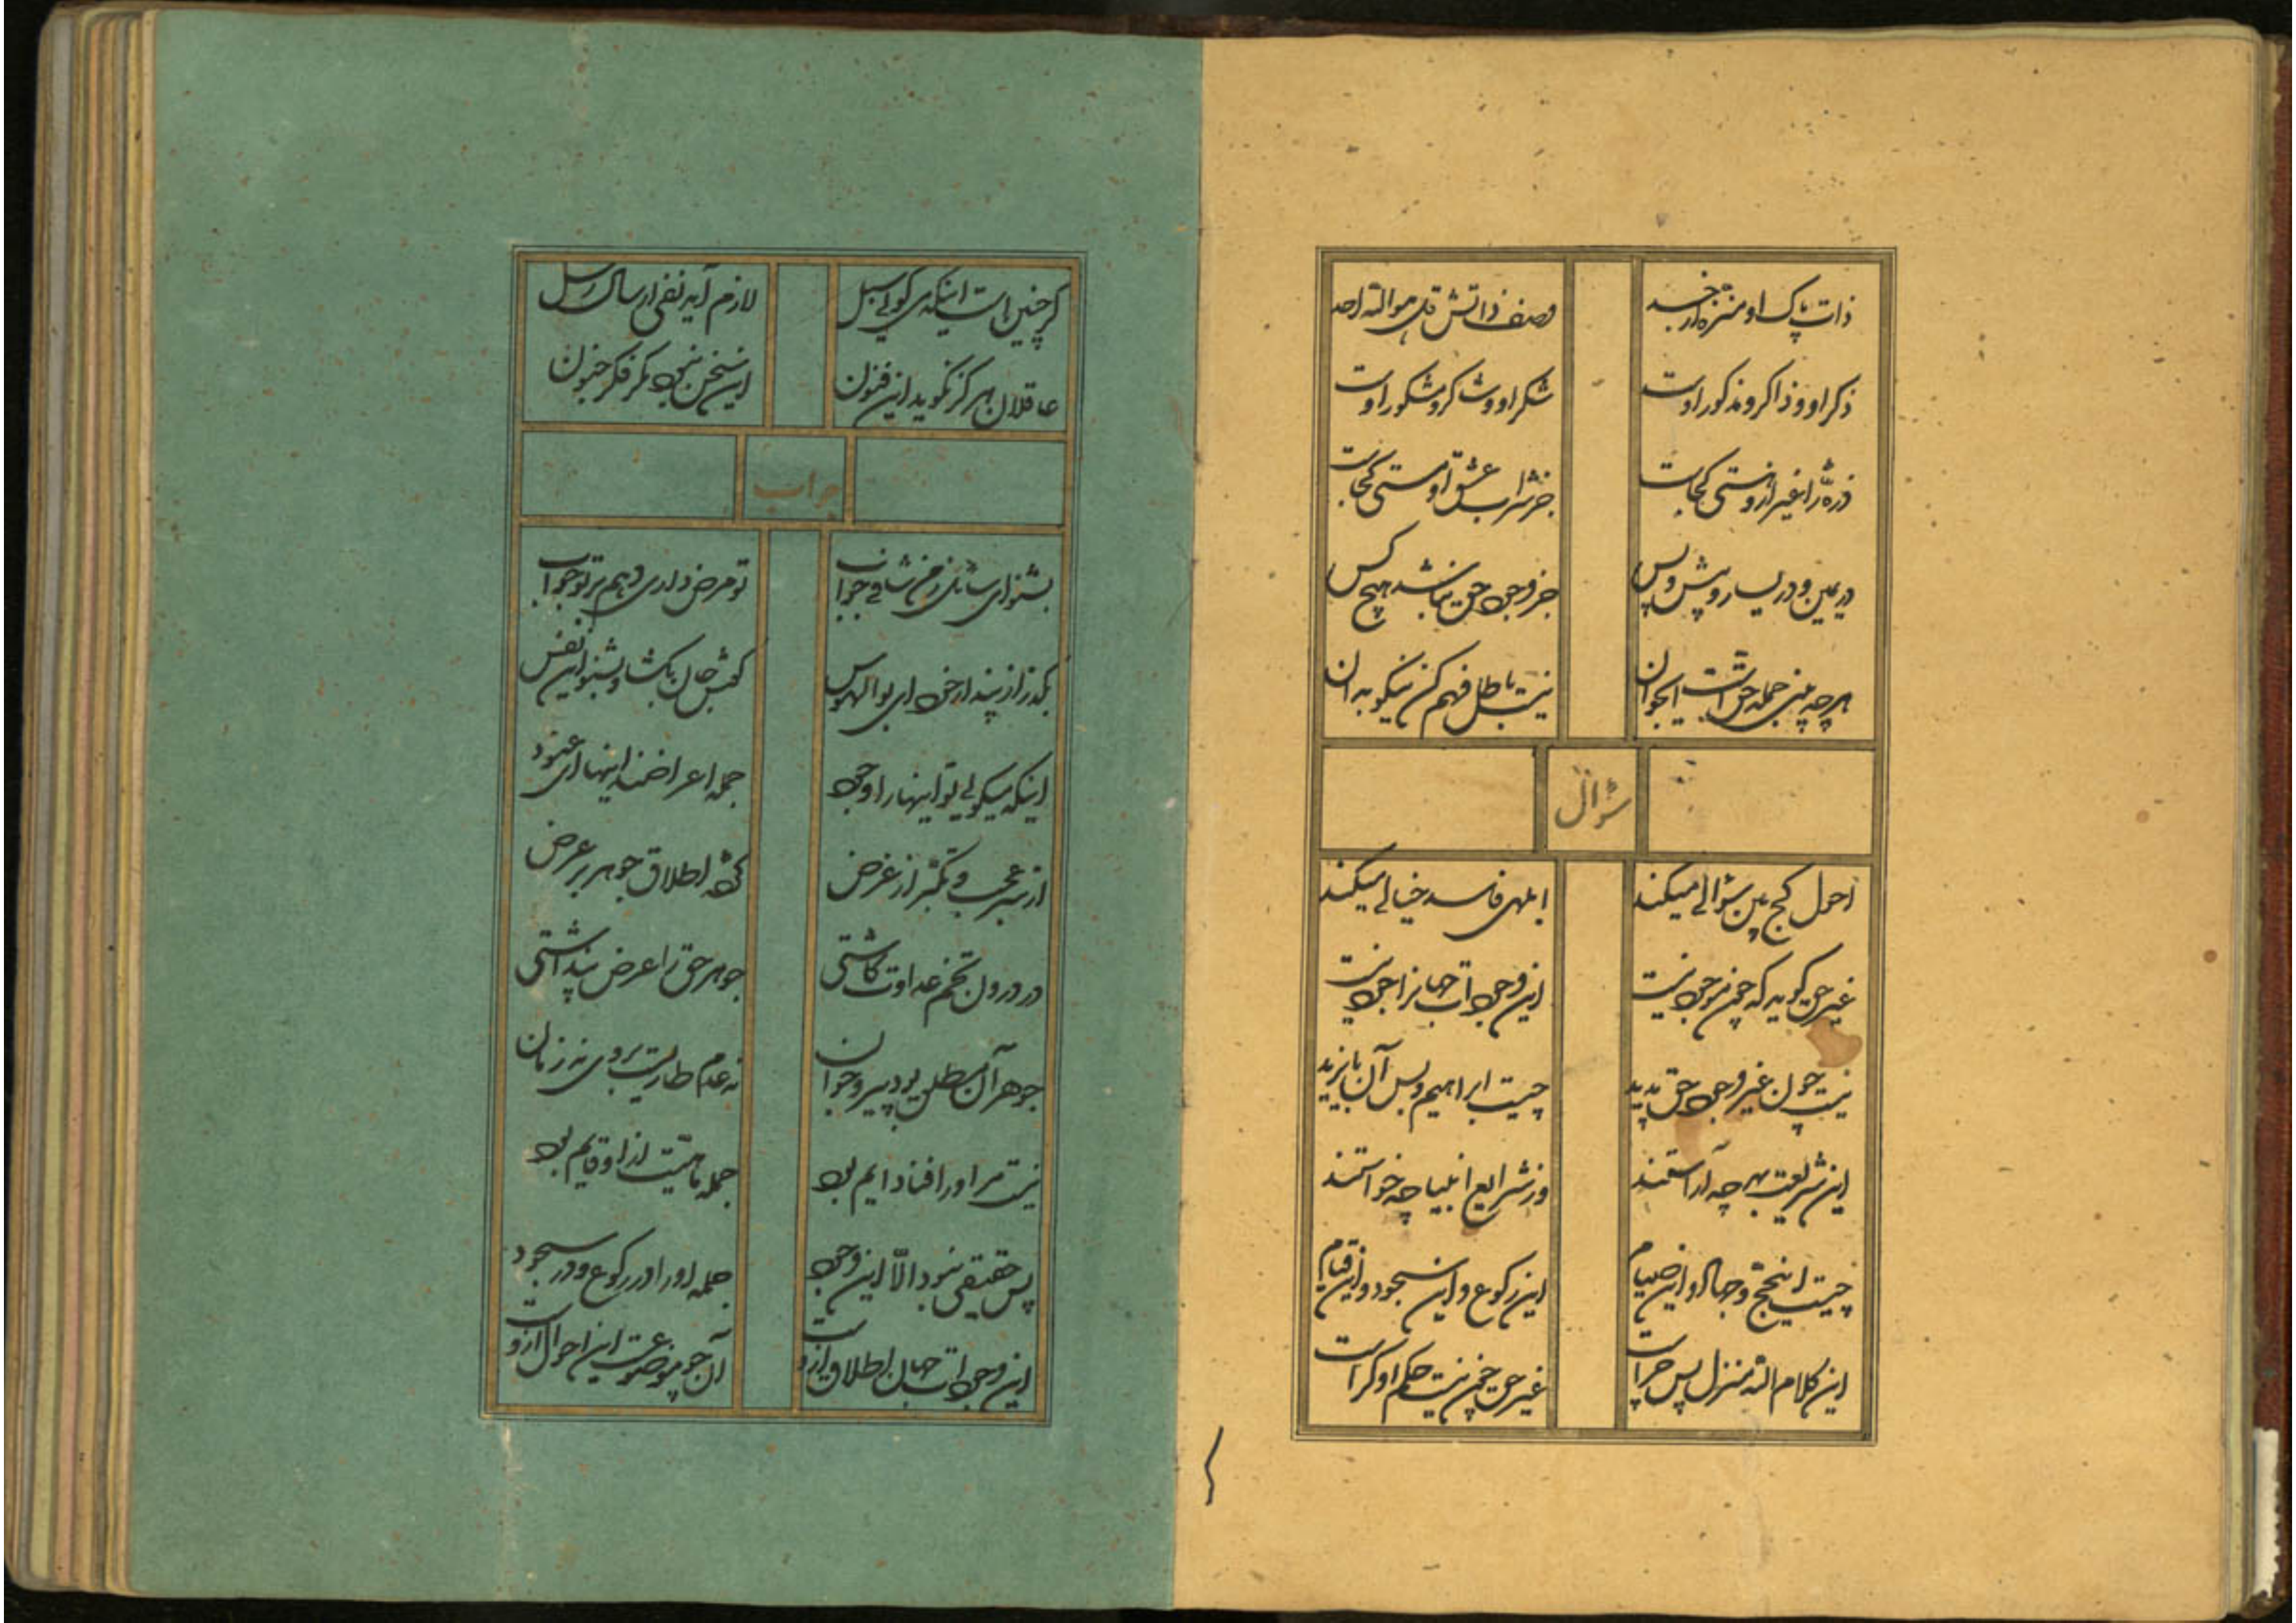 ذات پاک او منزه از جسد وصف ذاتش قل هو الله احد
ذکر او و ذاکر و مذکور اوست شکر او و شاکر و مشکور اوست
ذره را غیر ازو هستی کجاست جز شراب عشق او مستی کجاست
در یمین و در یسار و پیش و پس جز وجود حق نباشد هیچ کس
هرچه بینی جمله حقست ایجوان نیست باطل فهم کن نیکو بدان
سؤال
احول کج بین سؤالی میکند ابلهی فاسد خیالی میکند
غیر حق گوید که چون موجود نیست این وجودات جهانرا جود نیست
نیست چون غیر وجود حق پدید چیست ابراهیم و پس آن بایزید
این شریعت بهر چه آراستند وز شرایع انبیا چه خواستند
چیست این حج و جهاد و این صیام این رکوع و این سجود و این قیام
این کلام الله منزل پس چراست غیر حق چون نیست حکم او کراست
گر چنین است اینکه می گویی سبل لازم آید نفی ارسال رسل
عاقلان هرگز نگوید این فنون این سخن نبود مگر فکر جنون
جواب
بشنو ای سائل ز من شافی جواب تو مرض داری دهم بر تو جواب
بگذر از پندار خود ای بوالهوس گوش جان بگشا و بشنو این نفس
اینکه میگویی تو اینها را وجود جمله اعراضند اینها ای عنود
از سر عجب و تکبر از غرض کرده اطلاق جوهر بر عرض
در درون تخم عداوت کاشتی جوهر حق را عرض پنداشتی
جوهر آن مطلق بود پیر و جوان نه عدم طاریست بروی نه زمان
نیست مر او را فنا دایم بود جمله ماهیت ازو قایم بود
پس حقیقی نبود الا این وجود جمله او را در رکوع و در سجود
این وجودات جهان اطلاق ازوست آن چو موضوعست این احوال ازوست